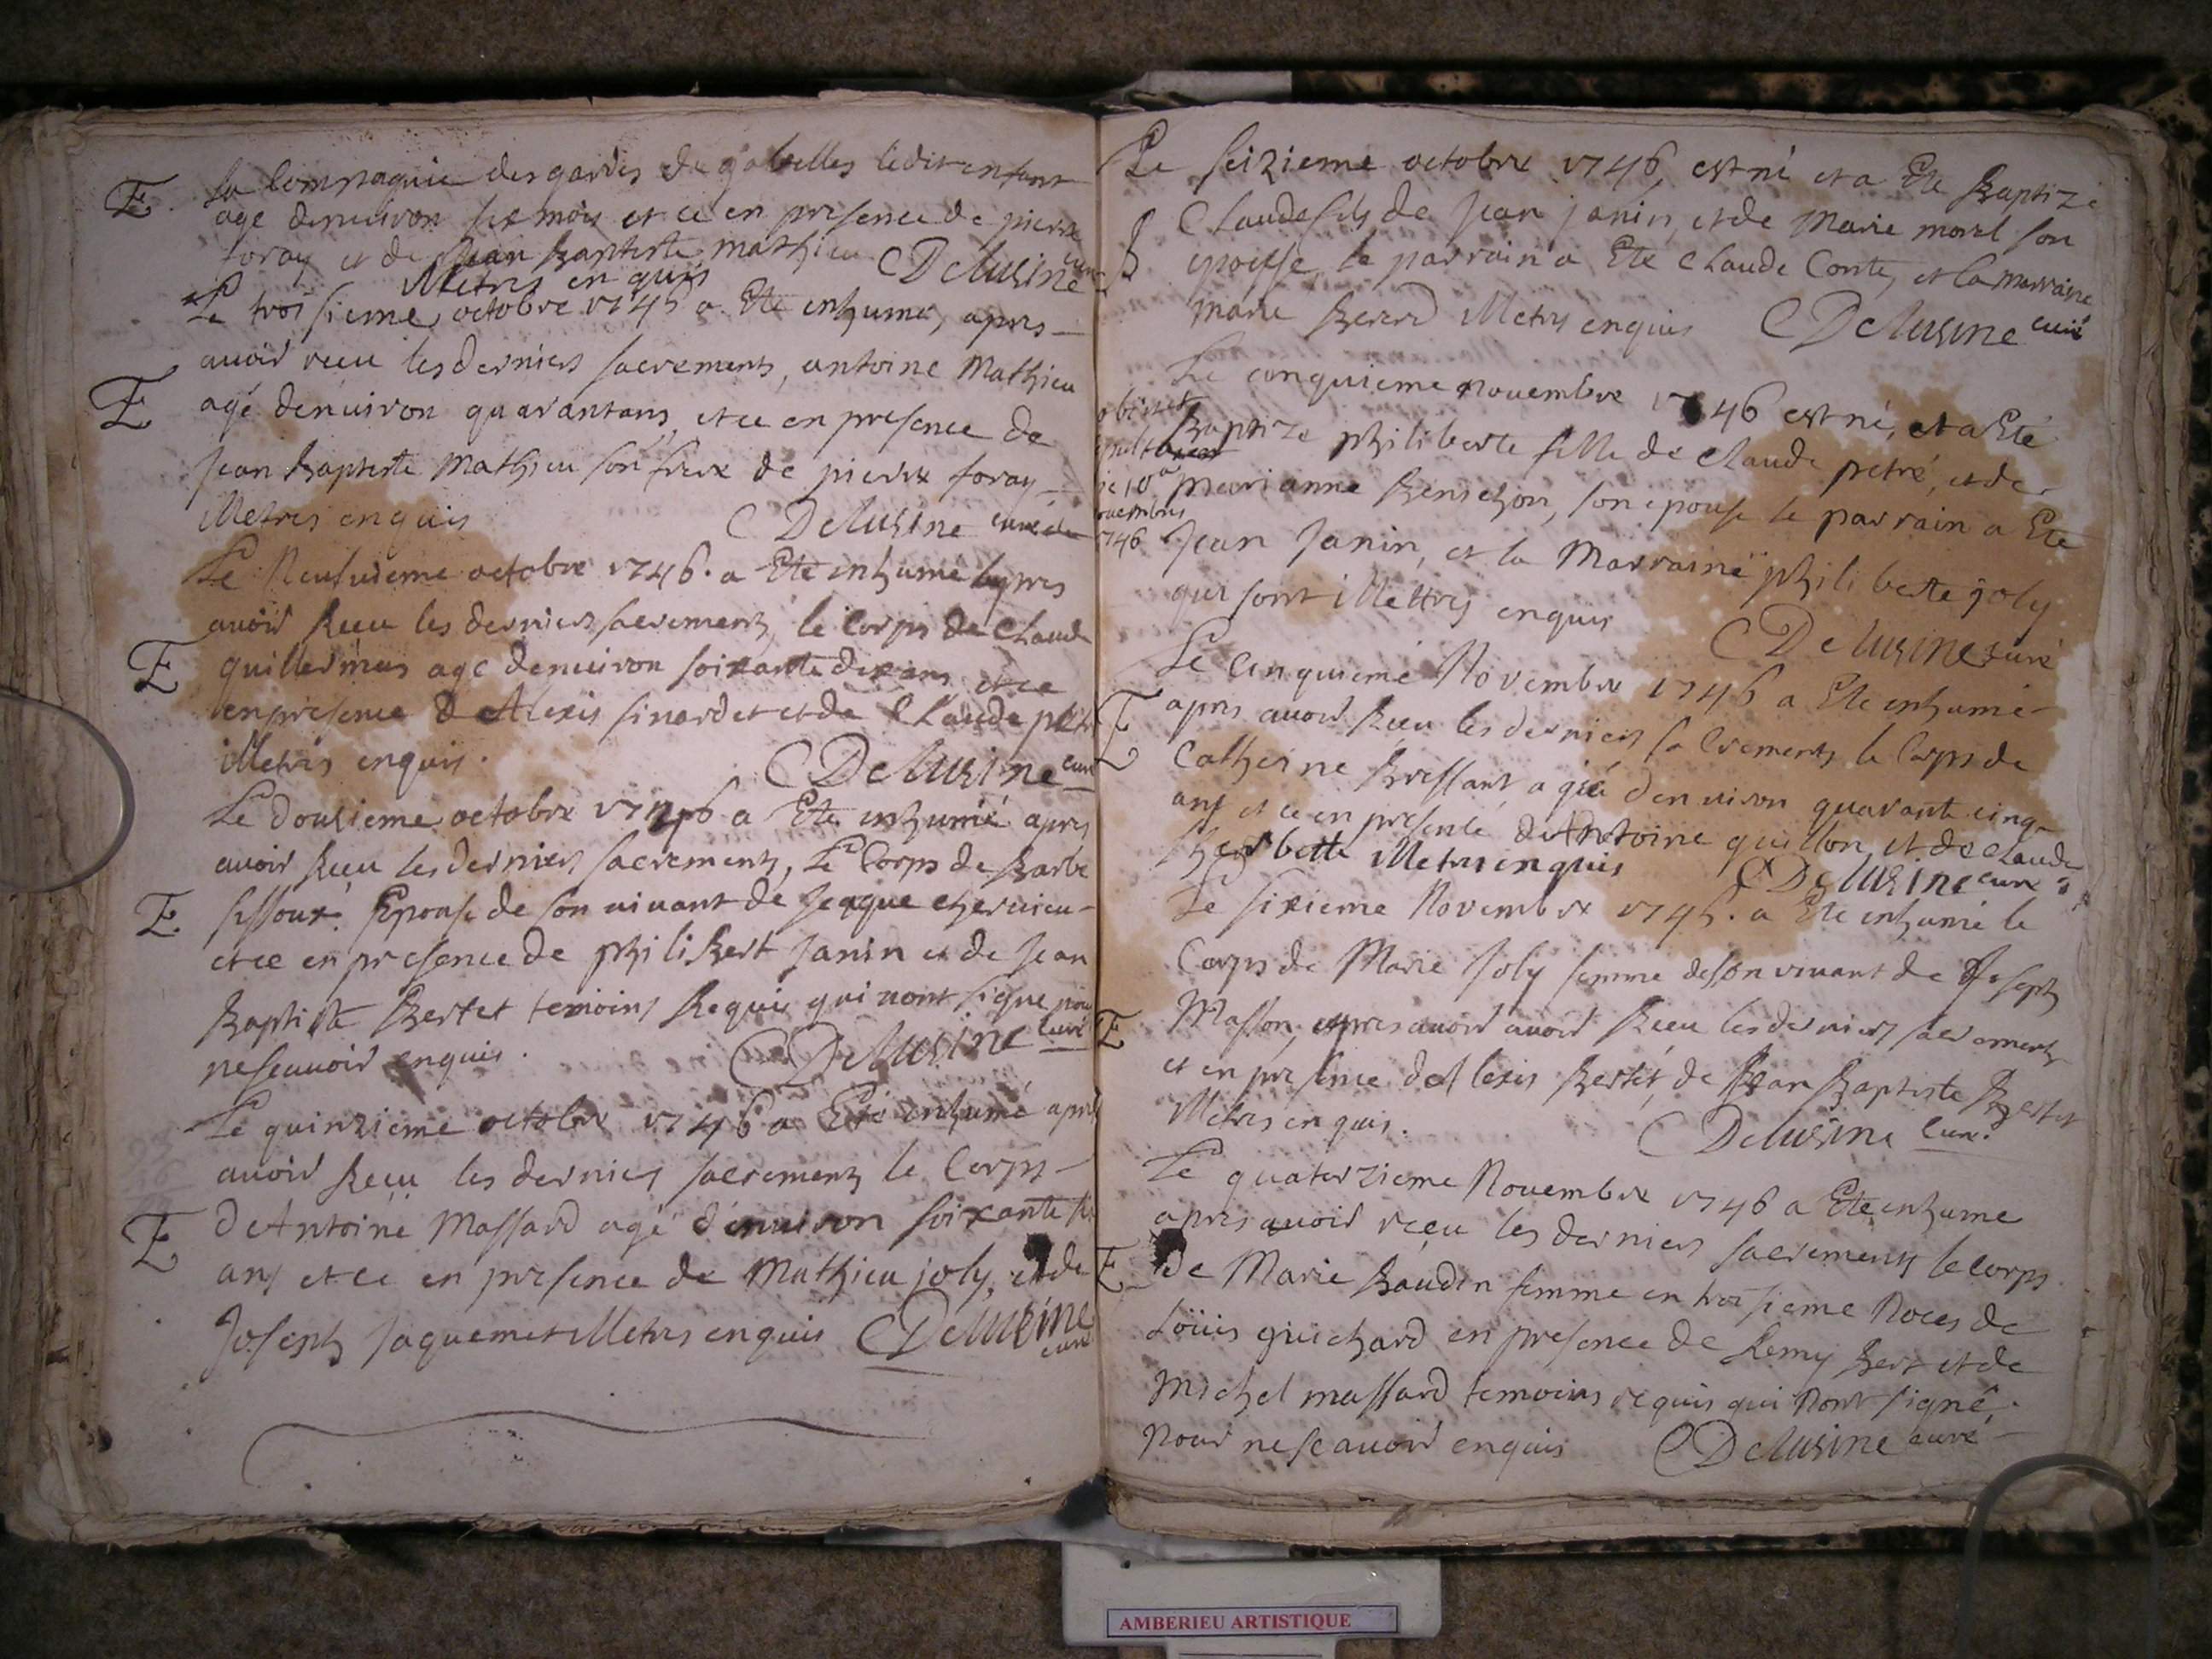 E. la Compagnie des gardes de gabelles ledit enfant
agé denuiron six mois et ce en presence de pierre
foray et de Jean Baptiste mathieu Delusine curé
illetres enquis
Le troisieme octobre 1746 a Ete inhumé, apres
auoir receu les derniers sacrements, antoine Mathieu
E agé denuiron quarantans, et ce en presence de
Jean Baptiste Mathieu son frere de pierre foray
illetres enquis Delusine curé
Le Neufuieme octobre 1746. a Ete inhumé apres
auoir Receu les derniers sacrements, le Corps de Claude
E guillermus agé denuiron soixante dix ans et ce
en presence de Alexis sinardet et de Claude petré
illetrés enquis. Delusine curé
Le dousieme octobre 1746 a Ete inhumé apres
auoir Receu les derniers sacrements, Le Corps de Barbe
E Epouse de son uiuant de Jacque
et ce en presence de philibert Janin et de Jean
Baptiste Bertet temoins Requis qui nont signe pour
ne scauoir enquis. Delusine Curé
Le quinzieme octobre 1746 a Eté inhumé apres
auoir Receu les derniers sacrements le Corps
E de Antoine Massard agé denuiron soixante
ans et ce en presence de Mathieu joly, et de
Joseph Jaquemet illetres enquis Delusine
curé
Le seizieme octobre 1746, est né et a Ete Baptizé
B Claude fils de Jean janin, et de Marie morel son
epouse, le parrain a Ete Claude Conte, et la marraine
marie Berrd illetres enquis Delusine curé
Le cinquieme nouembre 1746 est né, et a Eté
obiit et
Baptize philiberte fille de Claude petré, et de
sepulta est
die 10a
marianne Bensehon, son epouse le parrain a Ete
nouembris
1746
Jean Janin, et la Marraine philiberte joly
qui sont illettres enquis Delusine curé
Le Cinquieme Novembre 1746 a Ete inhumé
E apres auoir Receu les derniers sacrements le Corps de
Catherine Bressant agéé denuiron quarante cinq
ans et ce en presence de Antoine guillon et de Claude
illetres enquis Delusine curé
Le sixieme Novembre 1746. a Ete inhumé le
Corps de Marie Joly femme de son viuant de Joseph
E Masson, apres auoir auoir Receu les derniers sacrements
et en presence de Alexis Bertet, de Jean Baptiste Bertet
illetres enquis. Delusine Curé.
Le quaterzieme Nouembre 1746 a Ete inhume
apres auoir receu les derniers sacrements le corps
E de Marie Baudin femme en troisieme Noces de
Loüis guichard en presence de Remy Bert et de
Michel massard temoins requis qui Nont signé
Pour ne scauoir enquis Delusine curé
AMBERIEU ARTISTIQUE